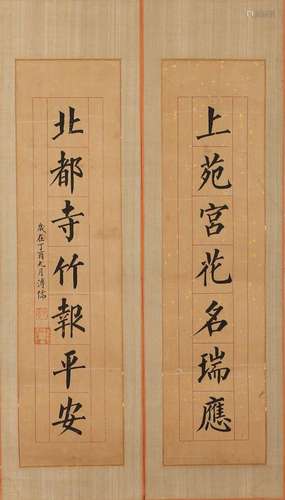 上苑宮花名瑞應
北都寺竹報平安
歲在丁酉九月溥儒